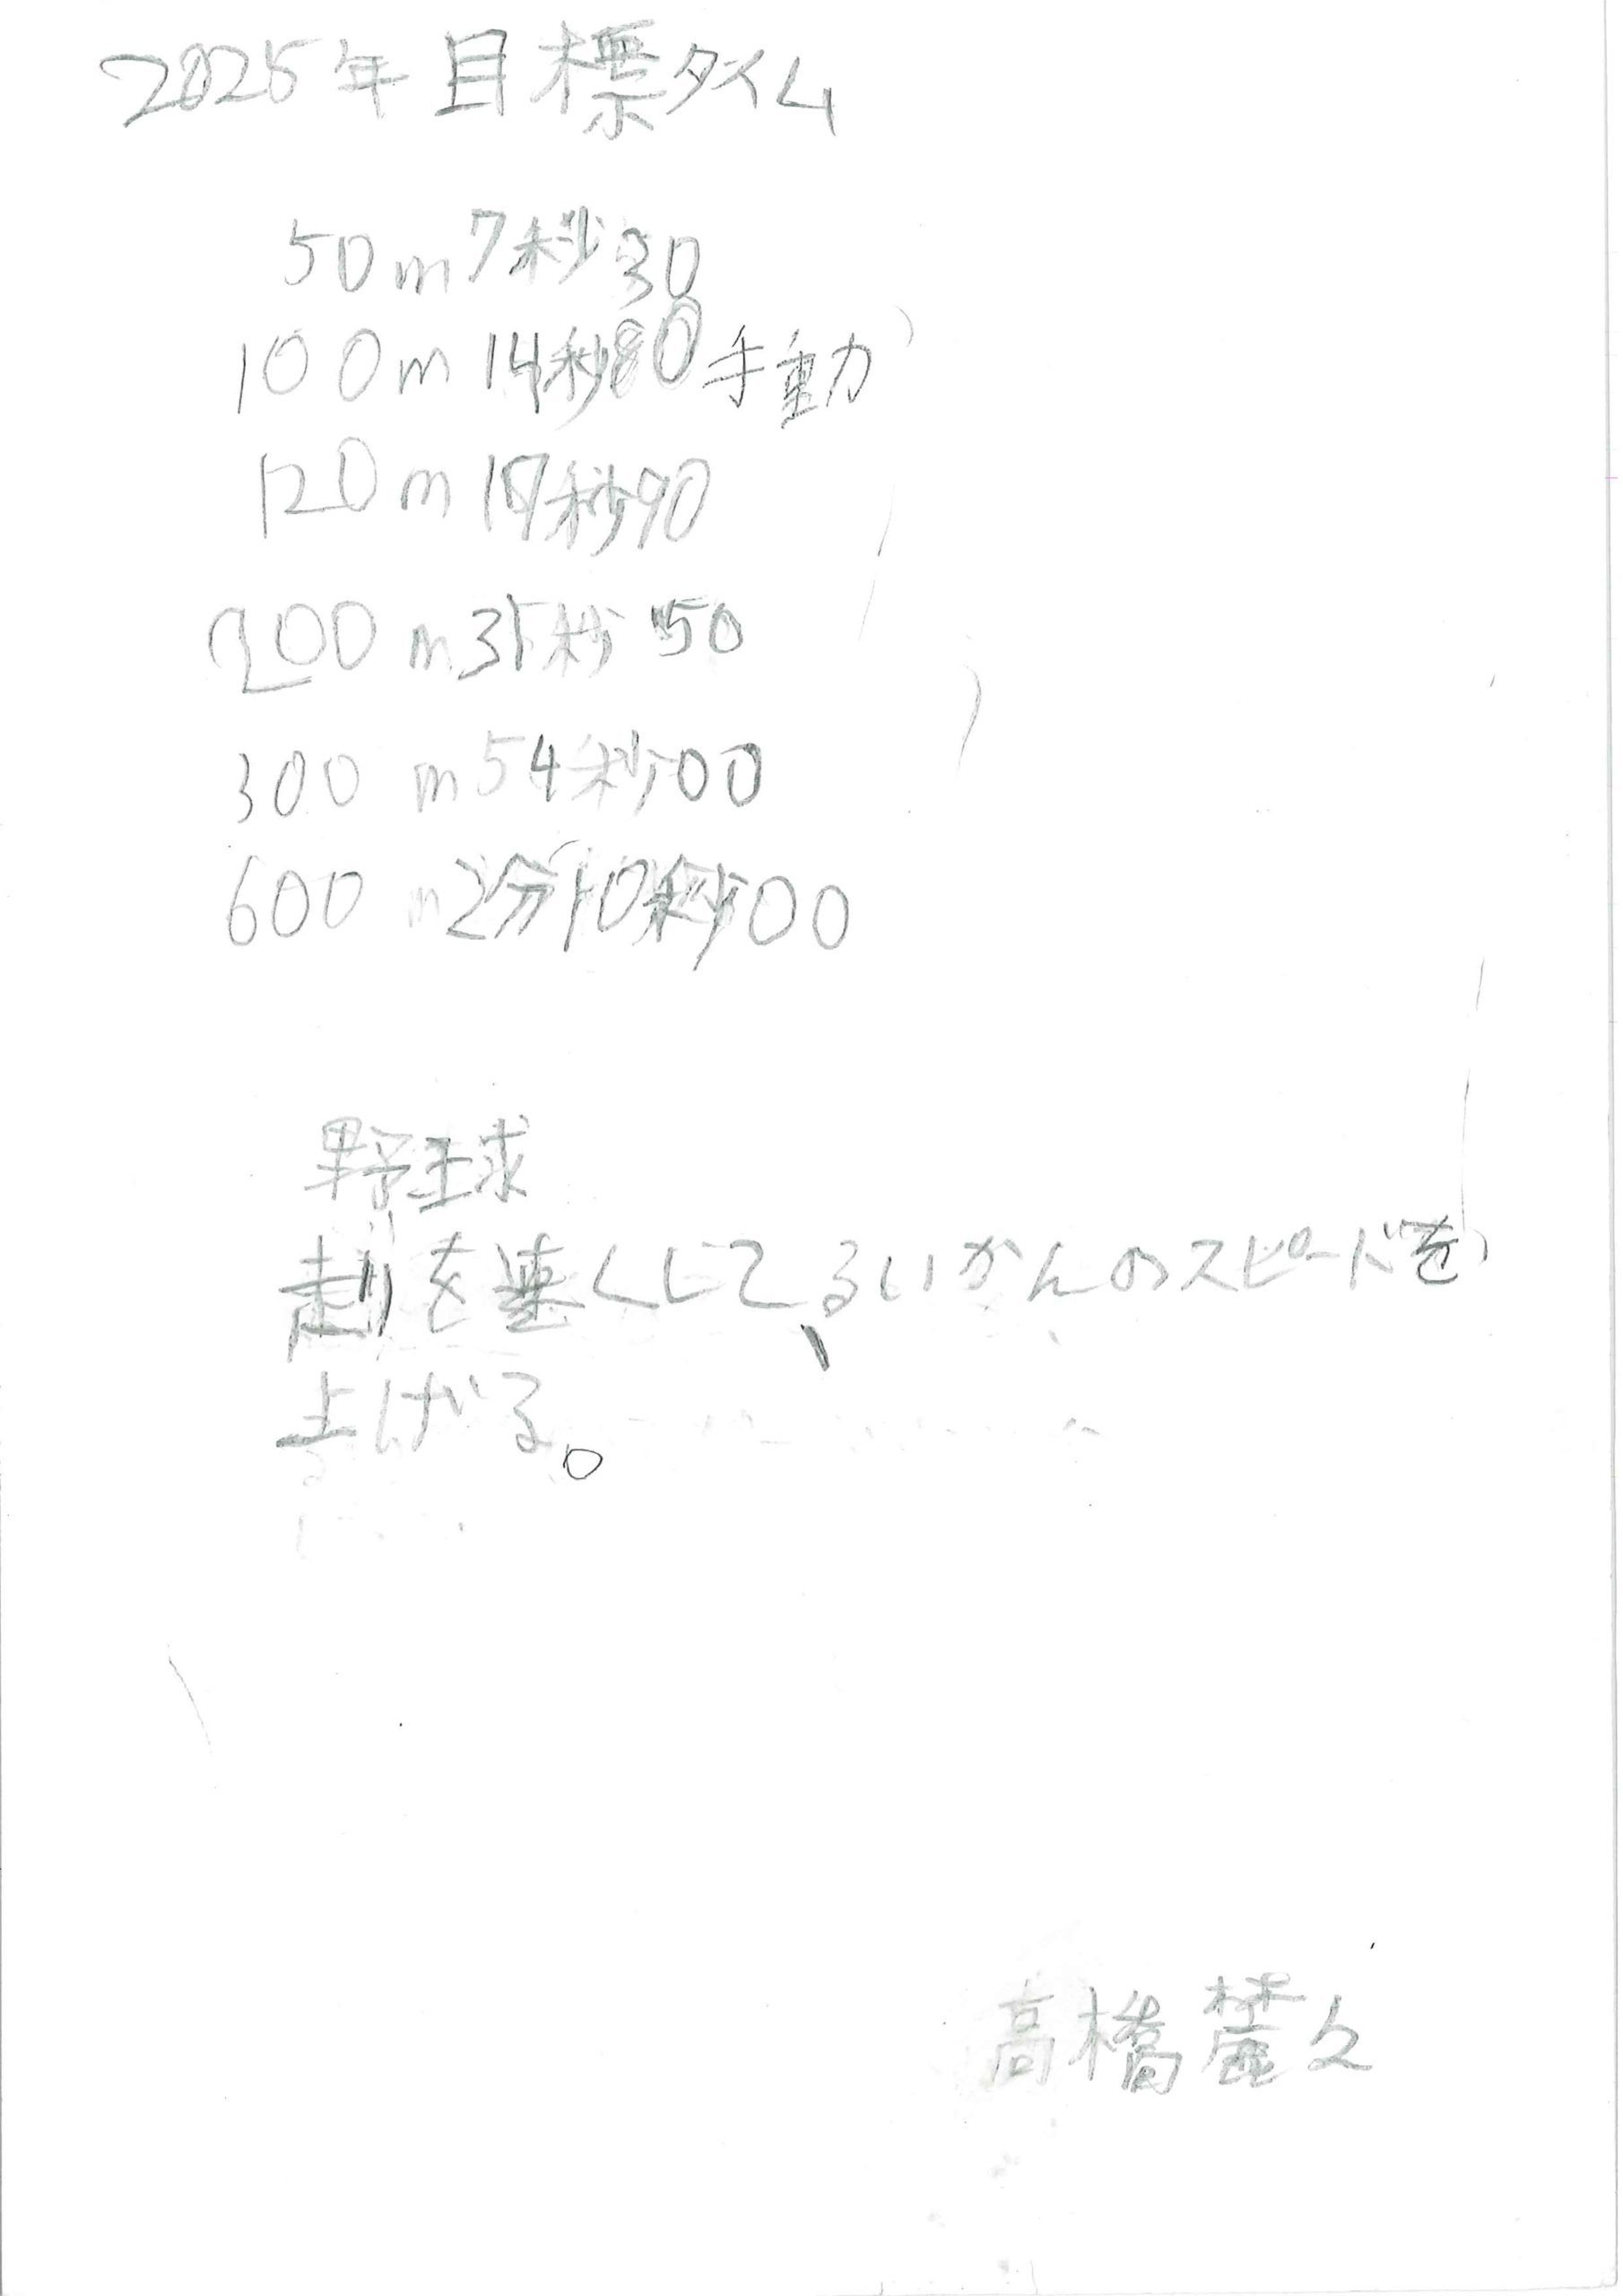 2025年目標タイム
50m7秒30
100m14秒80手動
120m17秒90
200m31秒50
300m54秒00
600m2分10秒00
野球
走りを速くして、るいかんのスピードを
上げる。
高橋麓久